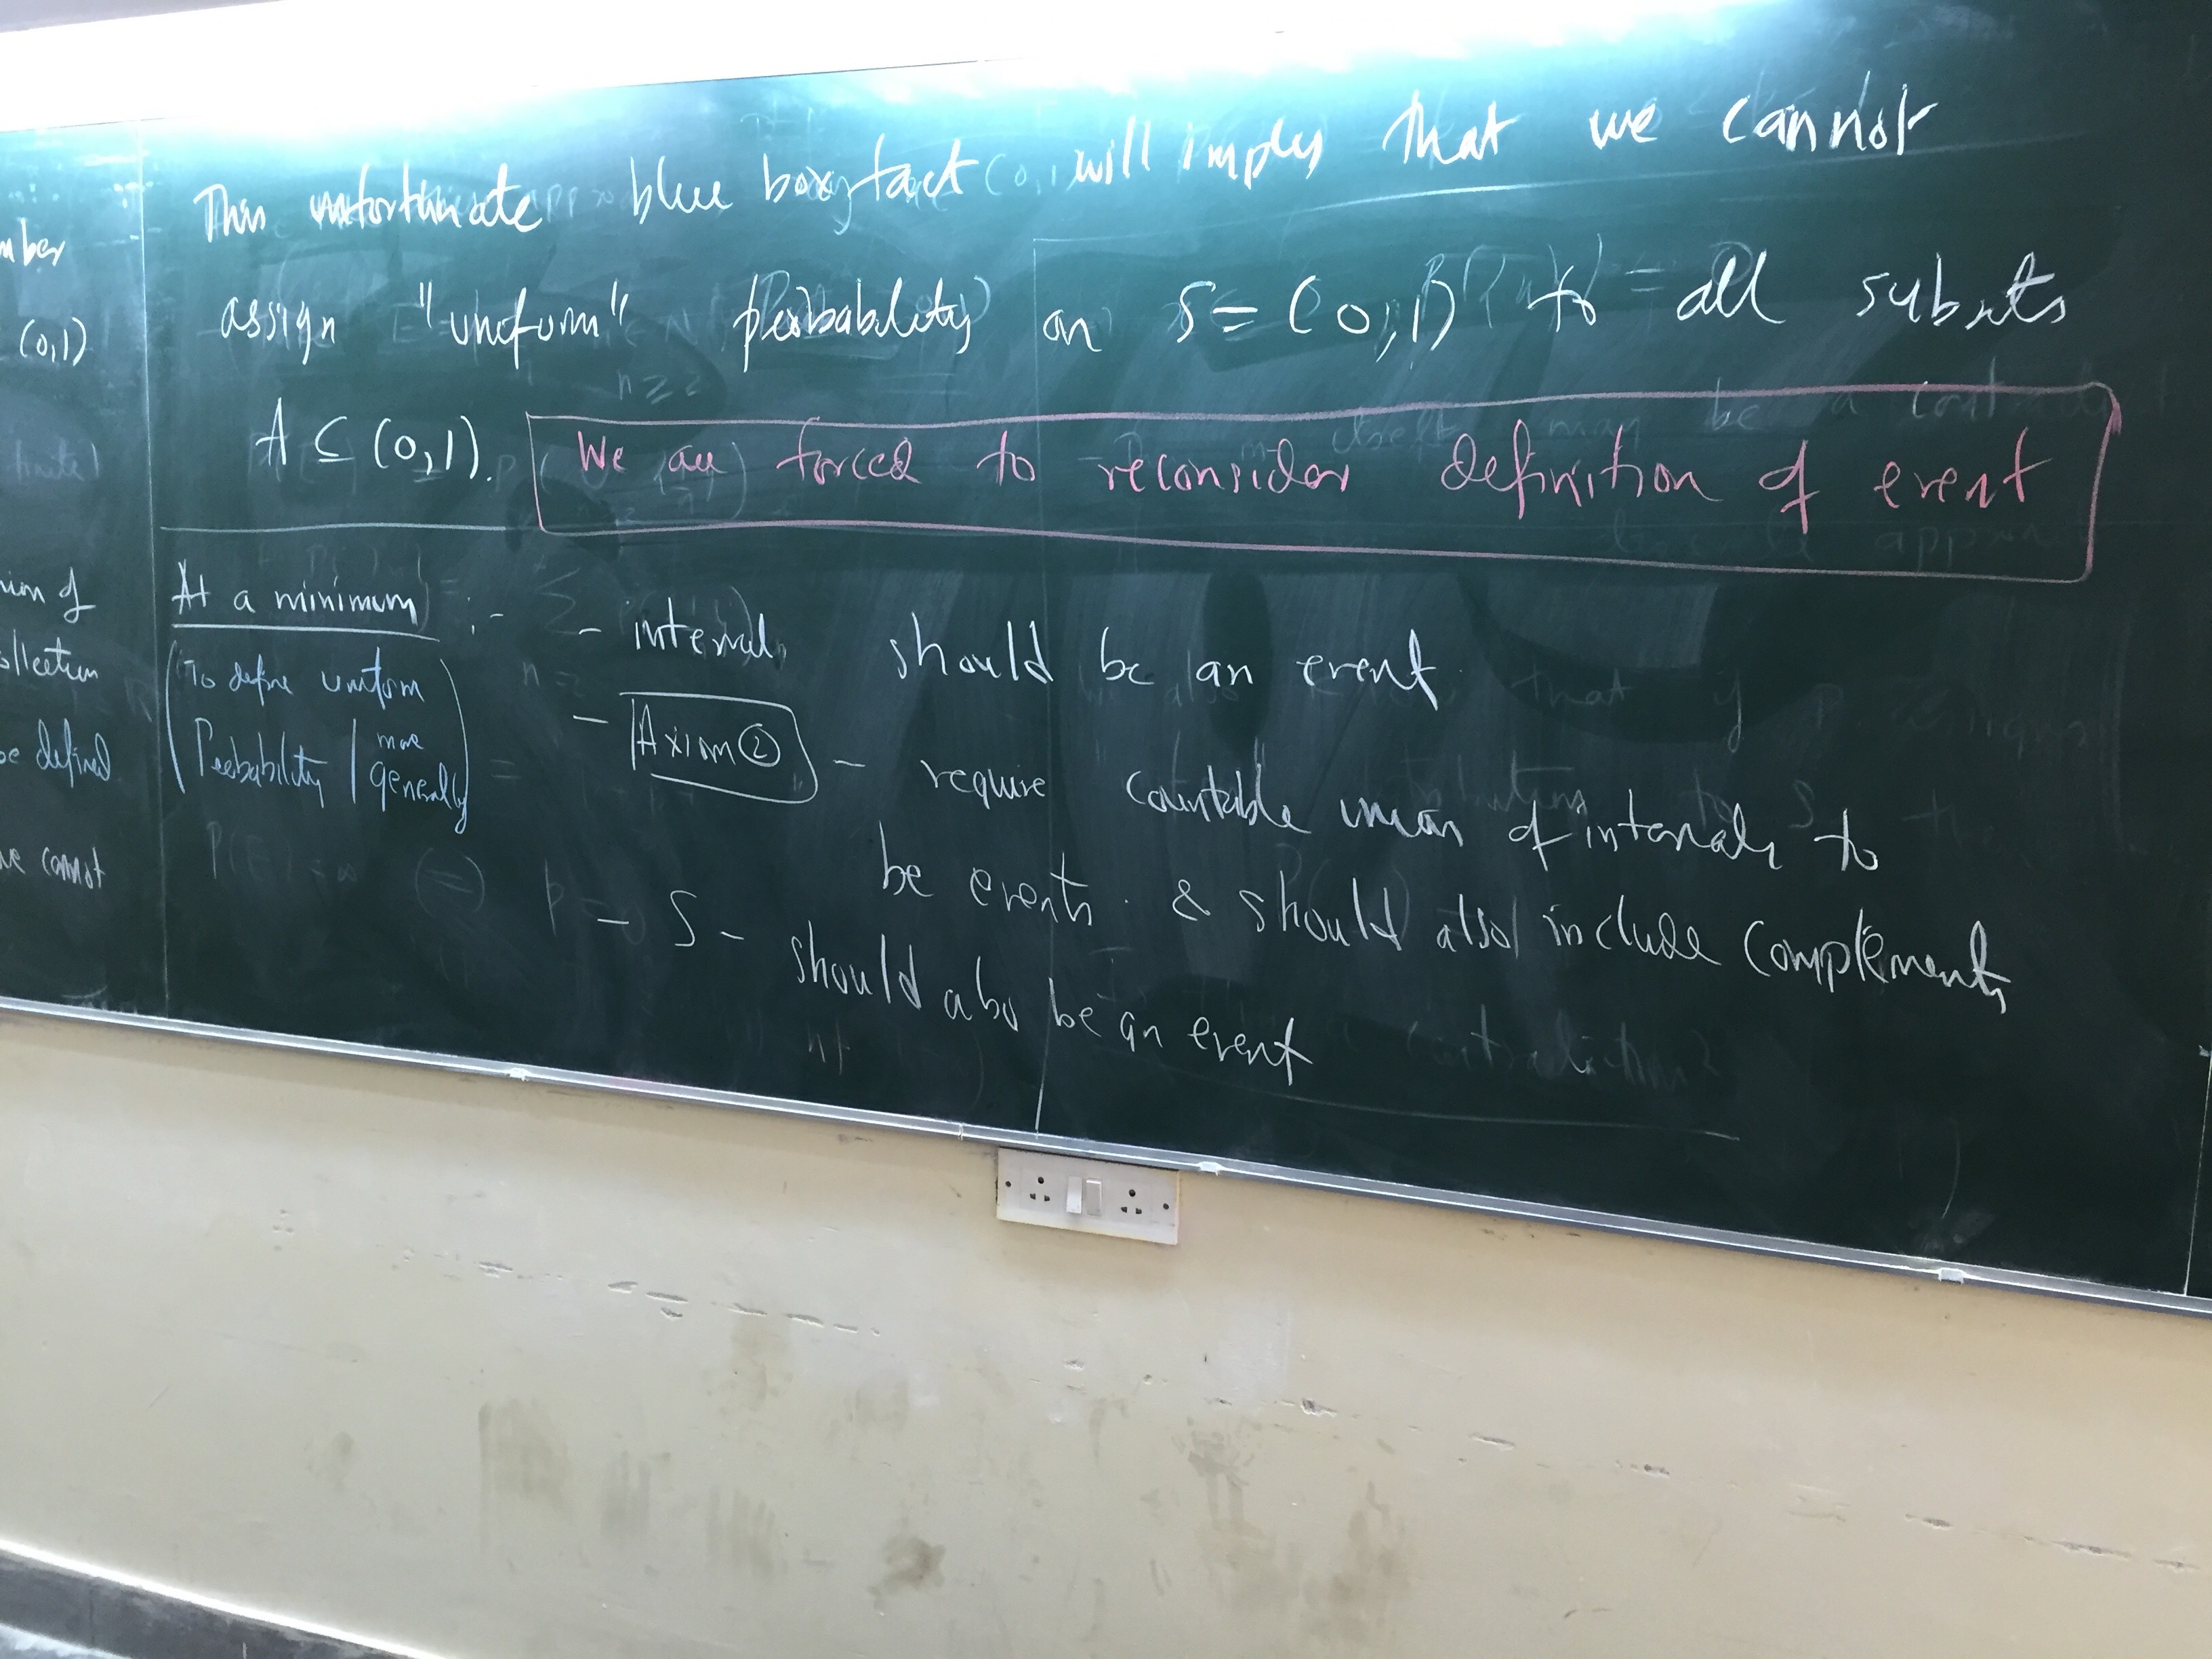 mber
(0,1)
This unfortunate blue box fact will imply that we cannot
assign "uniform" probability on S = (0,1) to all subsets
A ⊆ (0,1). We are forced to reconsider definition of event
At a minimum :- - intervals should be an event.
(To define uniform
Probability / more generally)
- Axiom ② - require countable union of intervals to
be events. & should also include complements
- S - should also be an event
ion of
ollection
be defined
we cannot